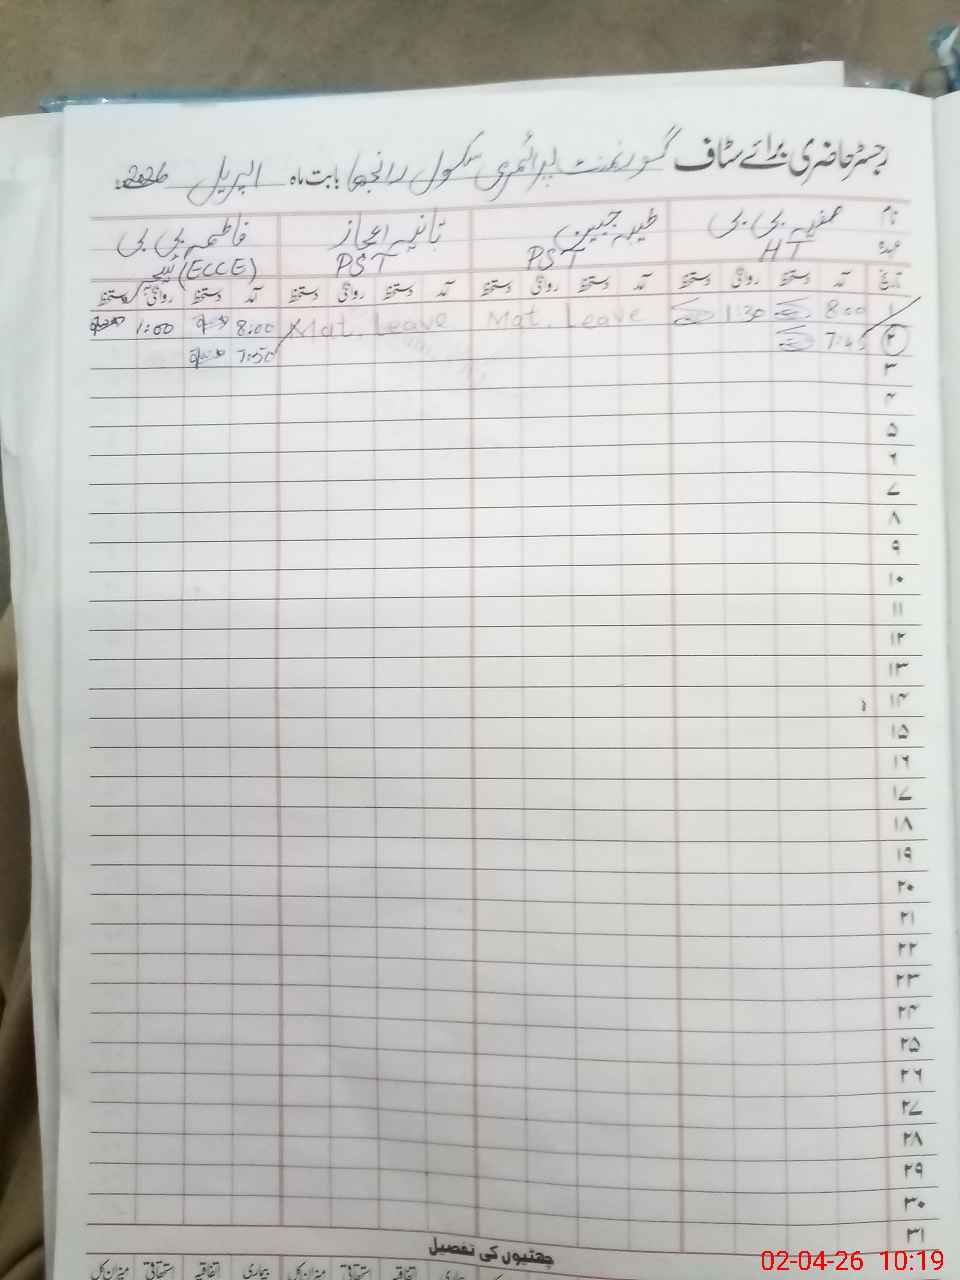 رجسٹر حاضری برائے سٹاف گورنمنٹ پرائمری سکول رانجھا بابت ماہ اپریل 2026
نام صفیہ بی بی طیبہ جبین ثانیہ اعجاز فاطمہ بی بی
عہدہ HT PST PST (ECCE) ٹیچر
تاریخ آمد دستخط روانگی دستخط آمد دستخط روانگی دستخط آمد دستخط روانگی دستخط آمد دستخط روانگی دستخط
۱ 8:00 1:30 Mat. Leave Mat. Leave 8:00 1:00
۲ 7:45 7:50
۳
۴
۵
۶
۷
۸
۹
۱۰
۱۱
۱۲
۱۳
۱۴
۱۵
۱۶
۱۷
۱۸
۱۹
۲۰
۲۱
۲۲
۲۳
۲۴
۲۵
۲۶
۲۷
۲۸
۲۹
۳۰
۳۱
چھٹیوں کی تفصیل
بیماری اتفاقیہ استحقاقی میزان کل بیماری اتفاقیہ استحقاقی میزان کل
02-04-26 10:19